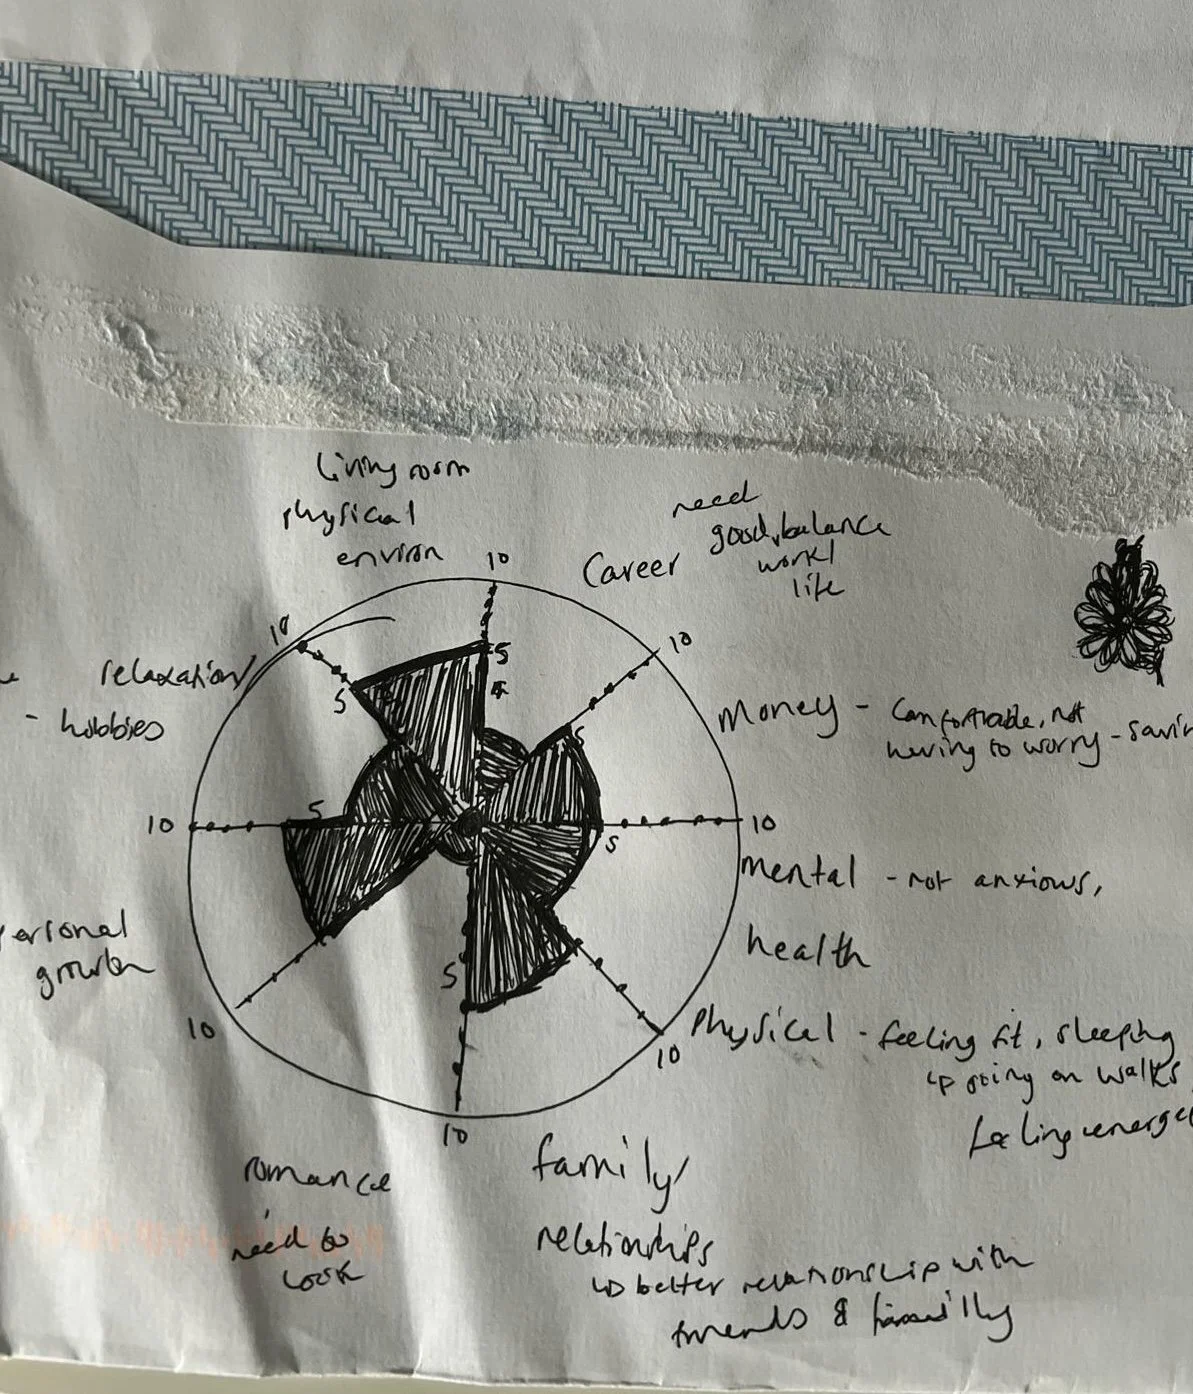 living room
physical
environ
10
Career
need
good balance
work/
life
10
10
relaxation/
- hobbies
5
5
4
Money - Comfortable, not
having to worry - savin
5
10
5
5
10
mental - not anxious,
health
ersonal
growth
10
5
10
10
Physical - feeling fit, sleeping
↳ going on walks
feeling energe
romance
need to
look
family/
relationships
↳ better relationship with
friends & family